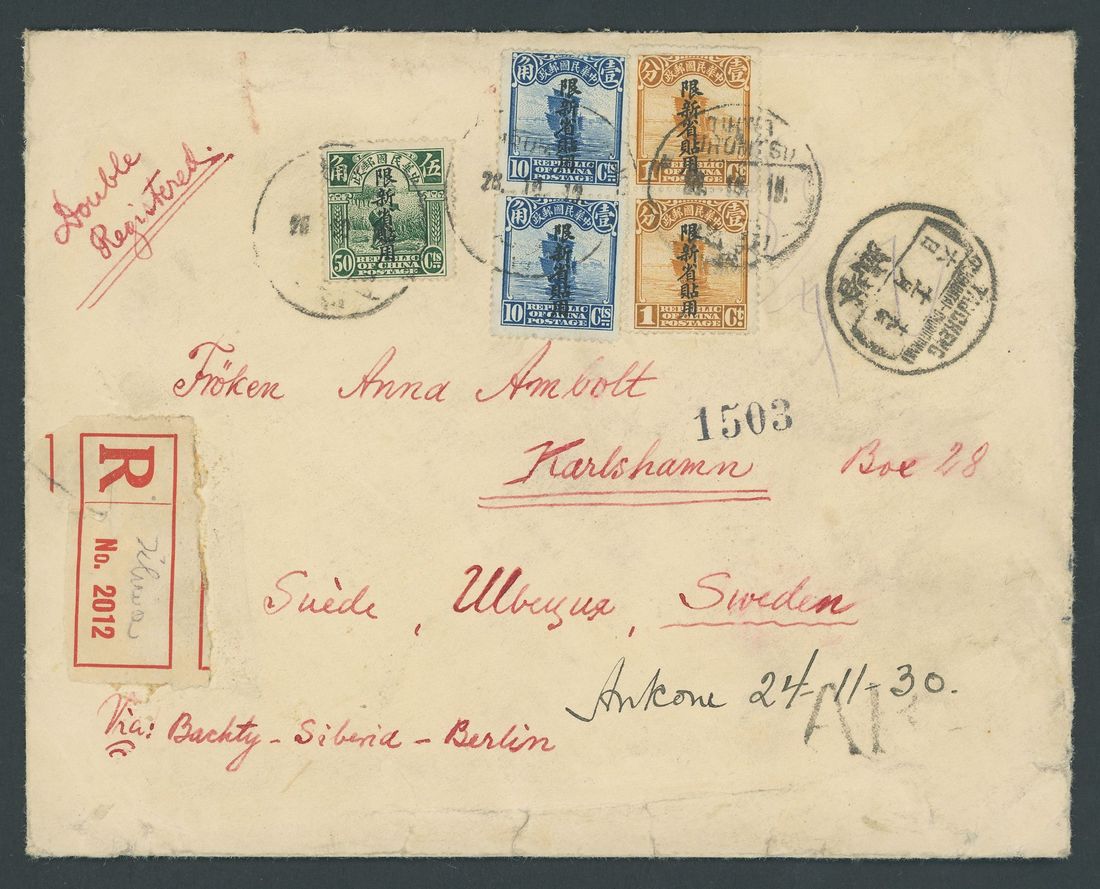 角 政郵國民華中 壹
限新省貼用
10 REPUBLIC OF CHINA POSTAGE Cts
分 政郵國民華中 壹
限新省貼用
1 REPUBLIC OF CHINA POSTAGE Ct
角 政郵國民華中 伍
限新省貼用
50 REPUBLIC OF CHINA POSTAGE Cts
角 政郵國民華中 壹
限新省貼用
10 REPUBLIC OF CHINA POSTAGE Cts
分 政郵國民華中 壹
限新省貼用
1 REPUBLIC OF CHINA POSTAGE Ct
Double
Registered.
TAHCHENG
Fröken Anna Ambolt
1503
Karlshamn Box 28
R
No. 2012
Suède, Швеция, Sweden
Ankom 24-11-30.
AR
Via: Bachty - Siberia - Berlin